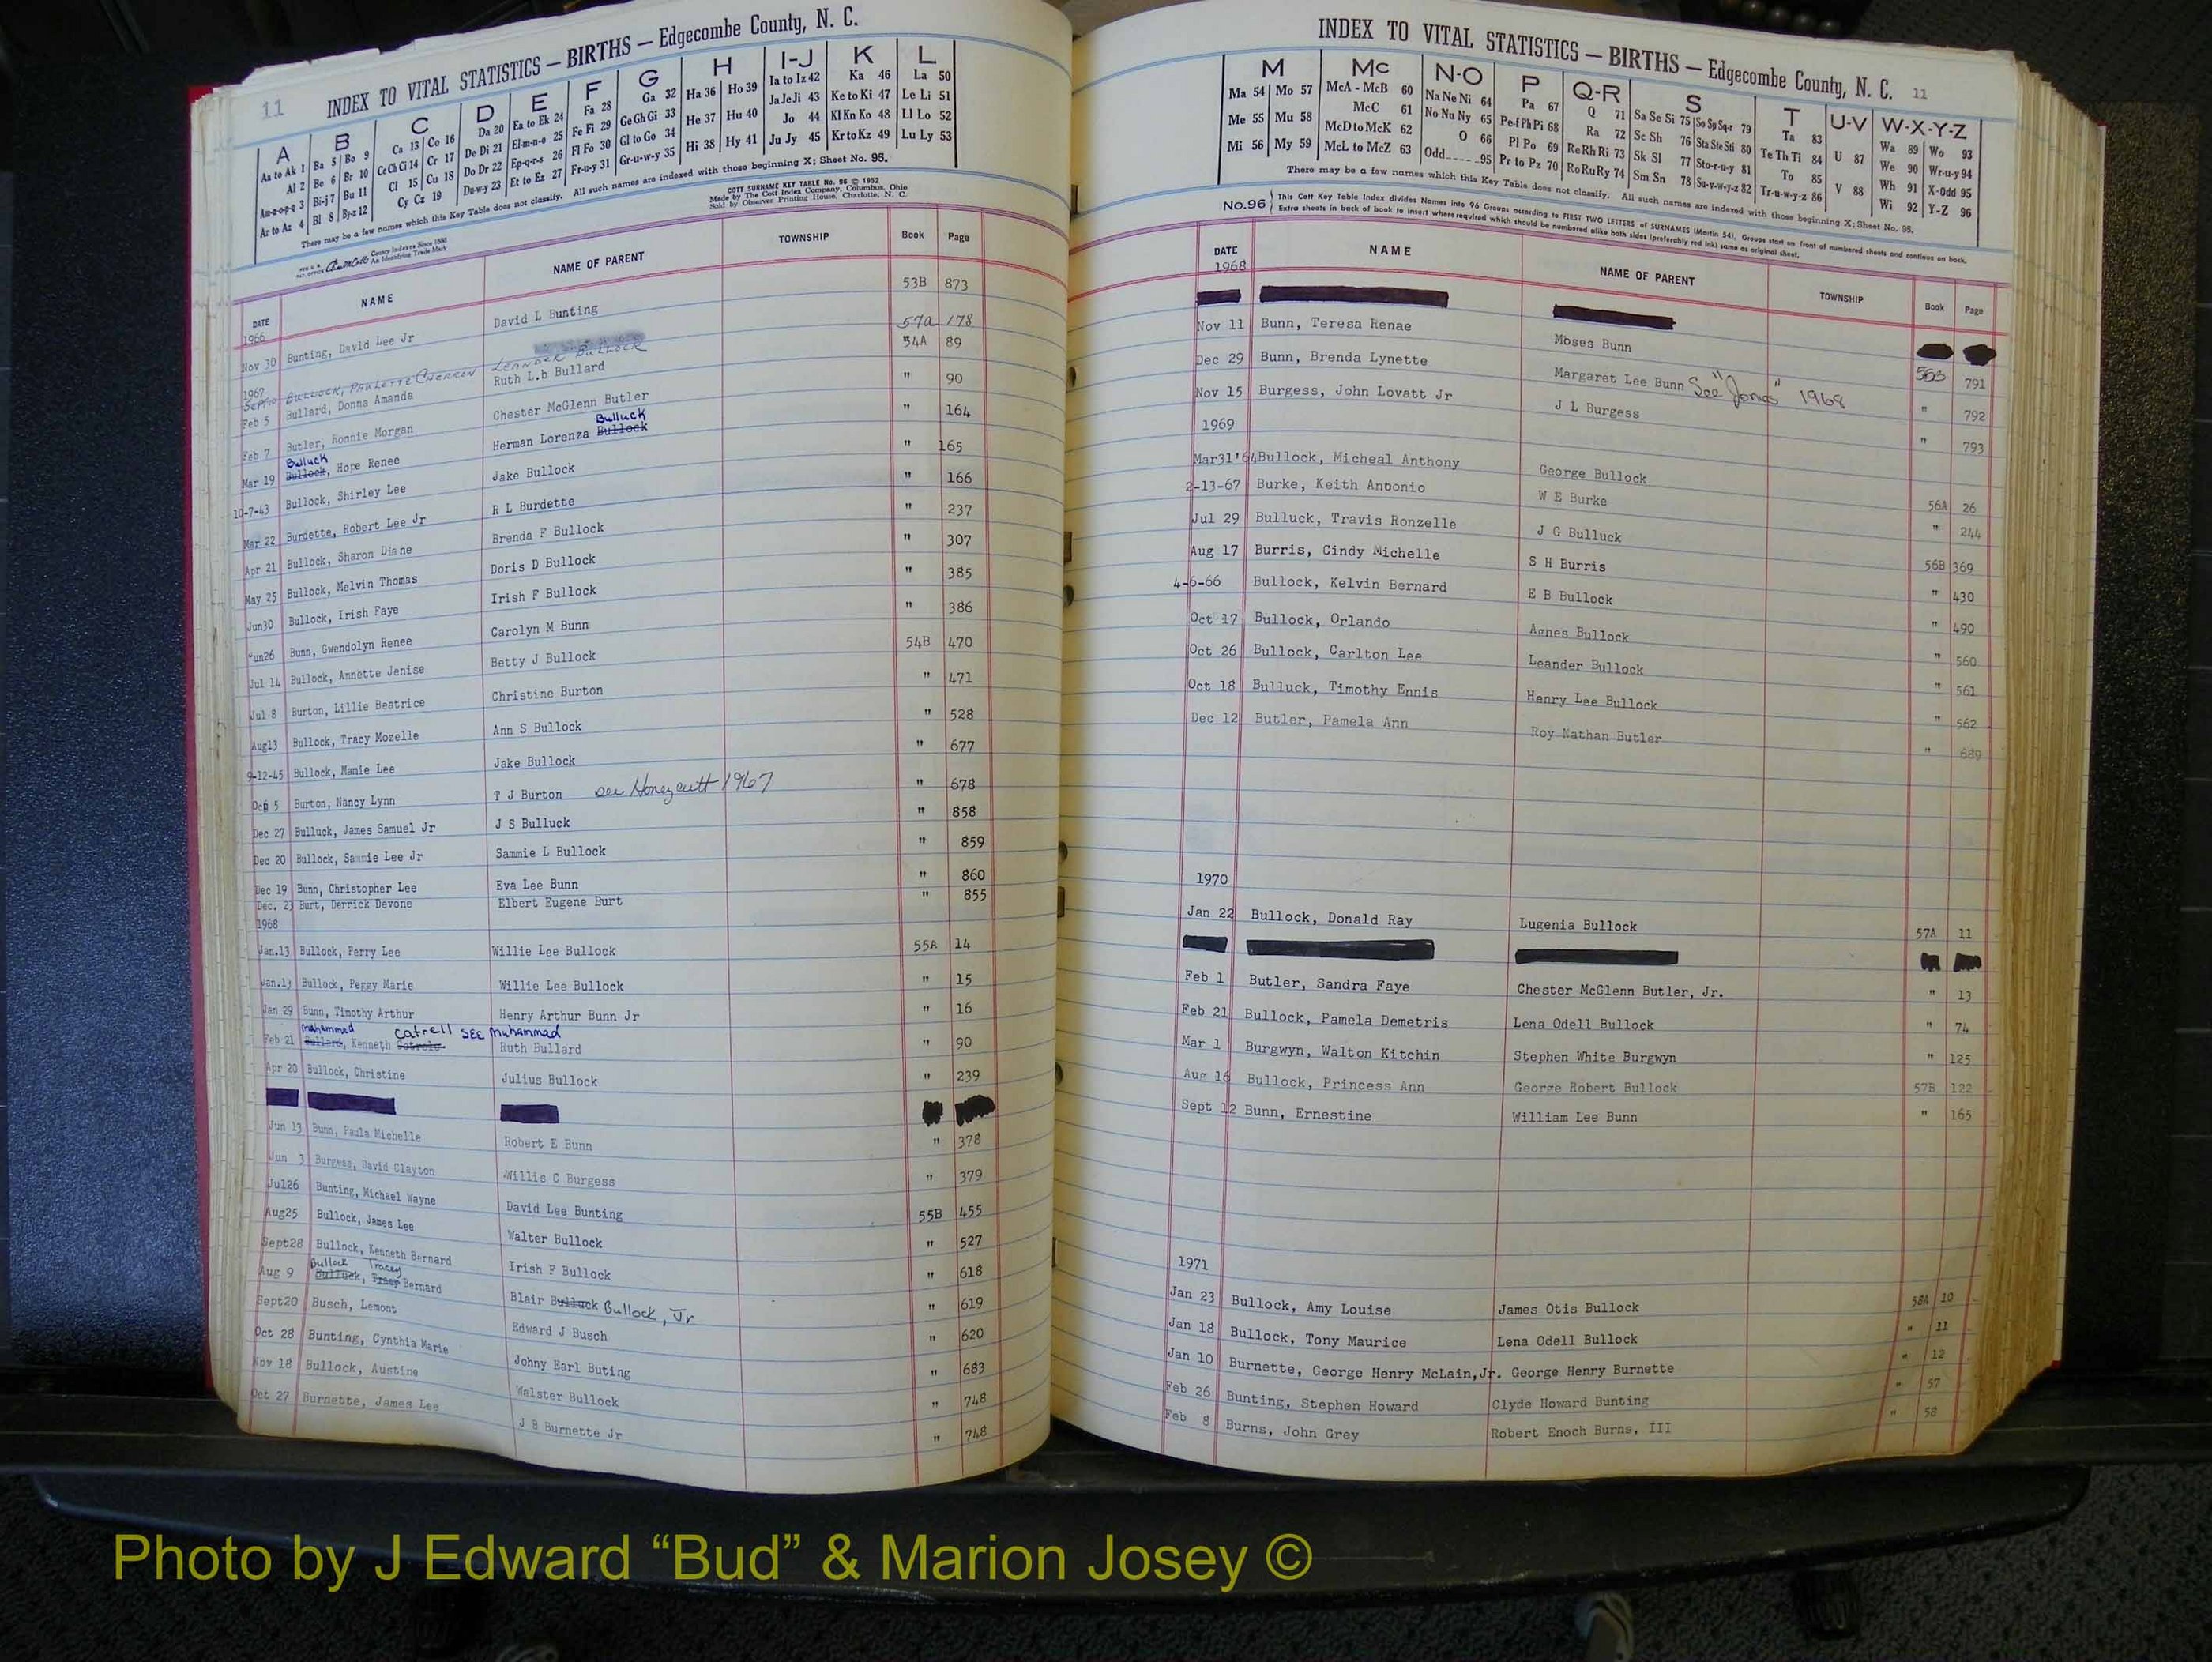 11 INDEX TO VITAL STATISTICS — BIRTHS — Edgecombe County, N. C.
A B C D E F G H I-J K L
Aa to Ak 1 Ba 5 Bo 9 Ca 13 Co 16 Da 20 Ea to Ek 24 Fa 28 Ga 32 Ha 36 Ho 39 Ia to Iz 42 Ka 46 La 50
Al 2 Be 6 Br 10 Ce Ch Ci 14 Cr 17 De Di 21 El-m-n-o 25 Fe Fi 29 Ge Gh Gi 33 He 37 Hu 40 Ja Je Ji 43 Ke to Ki 47 Le Li 51
Am-n-o-p-q 3 Bi-j 7 Bu 11 Cl 15 Cu 18 Do Dr 22 Ep-q-r-s 26 Fl Fo 30 Gl to Go 34 Hi 38 Hy 41 Jo 44 Kl Kn Ko 48 Ll Lo 52
Ar to Az 4 Bl 8 By-z 12 Cy Cz 19 Du-w-y 23 Et to Ez 27 Fr-u-y 31 Gr-u-w-y 35 Ju Jy 45 Kr to Kz 49 Lu Ly 53
There may be a few names which this Key Table does not classify. All such names are indexed with those beginning X; Sheet No. 95.
COTT SURNAME KEY TABLE No. 96 © 1952
Made by The Cott Index Company, Columbus, Ohio
Sold by Observer Printing House, Charlotte, N. C.
County Indexes Since 1888
An Identifying Trade Mark
DATE NAME NAME OF PARENT TOWNSHIP Book Page
1966
Nov 30 Bunting, David Lee Jr David L Bunting 53B 873
1967
Bullock, Paulette Cherron Leander Bullock 57a 178
Feb 5 Bullard, Donna Amanda Ruth L.b Bullard 54A 89
Feb 7 Butler, Ronnie Morgan Chester McGlenn Butler " 90
Mar 19 Bulluck Bullock, Hope Renee Herman Lorenza Bullock Bulluck " 164
10-7-43 Bullock, Shirley Lee Jake Bullock " 165
Mar 22 Burdette, Robert Lee Jr R L Burdette " 166
Apr 21 Bullock, Sharon Diane Brenda F Bullock " 237
May 25 Bullock, Melvin Thomas Doris D Bullock " 307
Jun30 Bullock, Irish Faye Irish F Bullock " 385
un26 Bunn, Gwendolyn Renee Carolyn M Bunn " 386
Jul 14 Bullock, Annette Jenise Betty J Bullock 54B 470
Jul 8 Burton, Lillie Beatrice Christine Burton " 471
Aug13 Bullock, Tracy Mozelle Ann S Bullock " 528
9-12-45 Bullock, Mamie Lee Jake Bullock " 677
Oct 5 Burton, Nancy Lynn T J Burton see Honeycutt 1967 " 678
Dec 27 Bulluck, James Samuel Jr J S Bulluck " 858
Dec 20 Bullock, Sammie Lee Jr Sammie L Bullock " 859
Dec 19 Bunn, Christopher Lee Eva Lee Bunn " 860
Dec. 23 Burt, Derrick Devone Elbert Eugene Burt " 855
1968
Jan.13 Bullock, Perry Lee Willie Lee Bullock 55A 14
Jan.13 Bullock, Peggy Marie Willie Lee Bullock " 15
Jan 29 Bunn, Timothy Arthur Henry Arthur Bunn Jr " 16
Muhammad Catrell SEE Muhammad
Feb 21 Bullard, Kenneth Ruth Bullard " 90
Apr 20 Bullock, Christine Julius Bullock " 239
Jun 13 Bunn, Paula Michelle Robert E Bunn " 378
Jun 3 Burgess, David Clayton Willis C Burgess " 379
Jul26 Bunting, Michael Wayne David Lee Bunting 55B 455
Aug25 Bullock, James Lee Walter Bullock " 527
Sept28 Bullock, Kenneth Bernard Irish F Bullock " 618
Bullock Tracey
Aug 9 Bulluck, Bernard Blair Bulluck Bullock, Jr " 619
Sept20 Busch, Lemont Edward J Busch " 620
Oct 28 Bunting, Cynthia Marie Johny Earl Buting " 683
Nov 18 Bullock, Austine Walster Bullock " 748
Oct 27 Burnette, James Lee J B Burnette Jr " 748
INDEX TO VITAL STATISTICS — BIRTHS — Edgecombe County, N. C. 11
M Mc N-O P Q-R S T U-V W-X-Y-Z
Ma 54 Mo 57 McA - McB 60 Na Ne Ni 64 Pa 67 Q 71 Sa Se Si 75 So Sp Sq-r 79 Ta 83 Wa 89 Wo 93
Me 55 Mu 58 McC 61 No Nu Ny 65 Pe-f Ph Pi 68 Ra 72 Sc Sh 76 Sta Ste Sti 80 Te Th Ti 84 U 87 We 90 Wr-u-y 94
Mi 56 My 59 McD to McK 62 O 66 Pl Po 69 Re Rh Ri 73 Sk Sl 77 Sto-r-u-y 81 To 85 Wh 91 X-Odd 95
McL to McZ 63 Odd 95 Pr to Pz 70 Ro Ru Ry 74 Sm Sn 78 Su-v-w-y-z 82 Tr-u-w-y-z 86 V 88 Wi 92 Y-Z 96
There may be a few names which this Key Table does not classify. All such names are indexed with those beginning X; Sheet No. 95.
No.96 This Cott Key Table Index divides Names into 96 Groups according to FIRST TWO LETTERS of SURNAMES (Martin 54). Groups start on front of numbered sheets and continue on back.
Extra sheets in back of book to insert where required which should be numbered alike both sides (preferably red ink) same as original sheet.
DATE NAME NAME OF PARENT TOWNSHIP Book Page
1968
Nov 11 Bunn, Teresa Renae Moses Bunn 56B 791
Dec 29 Bunn, Brenda Lynette Margaret Lee Bunn See "Jones" 1968 " 792
Nov 15 Burgess, John Lovatt Jr J L Burgess " 793
1969
Mar31'64 Bullock, Micheal Anthony George Bullock 56A 26
2-13-67 Burke, Keith Antonio W E Burke " 244
Jul 29 Bulluck, Travis Ronzelle J G Bulluck 56B 369
Aug 17 Burris, Cindy Michelle S H Burris " 430
4-6-66 Bullock, Kelvin Bernard E B Bullock " 490
Oct 17 Bullock, Orlando Agnes Bullock " 560
Oct 26 Bullock, Carlton Lee Leander Bullock " 561
Oct 18 Bulluck, Timothy Ennis Henry Lee Bullock " 562
Dec 12 Butler, Pamela Ann Roy Nathan Butler " 689
1970
Jan 22 Bullock, Donald Ray Lugenia Bullock 57A 11
Feb 1 Butler, Sandra Faye Chester McGlenn Butler, Jr. " 13
Feb 21 Bullock, Pamela Demetris Lena Odell Bullock " 74
Mar 1 Burgwyn, Walton Kitchin Stephen White Burgwyn " 125
Aug 16 Bullock, Princess Ann George Robert Bullock 57B 122
Sept 12 Bunn, Ernestine William Lee Bunn " 165
1971
Jan 23 Bullock, Amy Louise James Otis Bullock 58A 10
Jan 18 Bullock, Tony Maurice Lena Odell Bullock " 11
Jan 10 Burnette, George Henry McLain,Jr. George Henry Burnette " 12
Feb 26 Bunting, Stephen Howard Clyde Howard Bunting " 57
Feb 8 Burns, John Grey Robert Enoch Burns, III " 58
Photo by J Edward “Bud” & Marion Josey ©